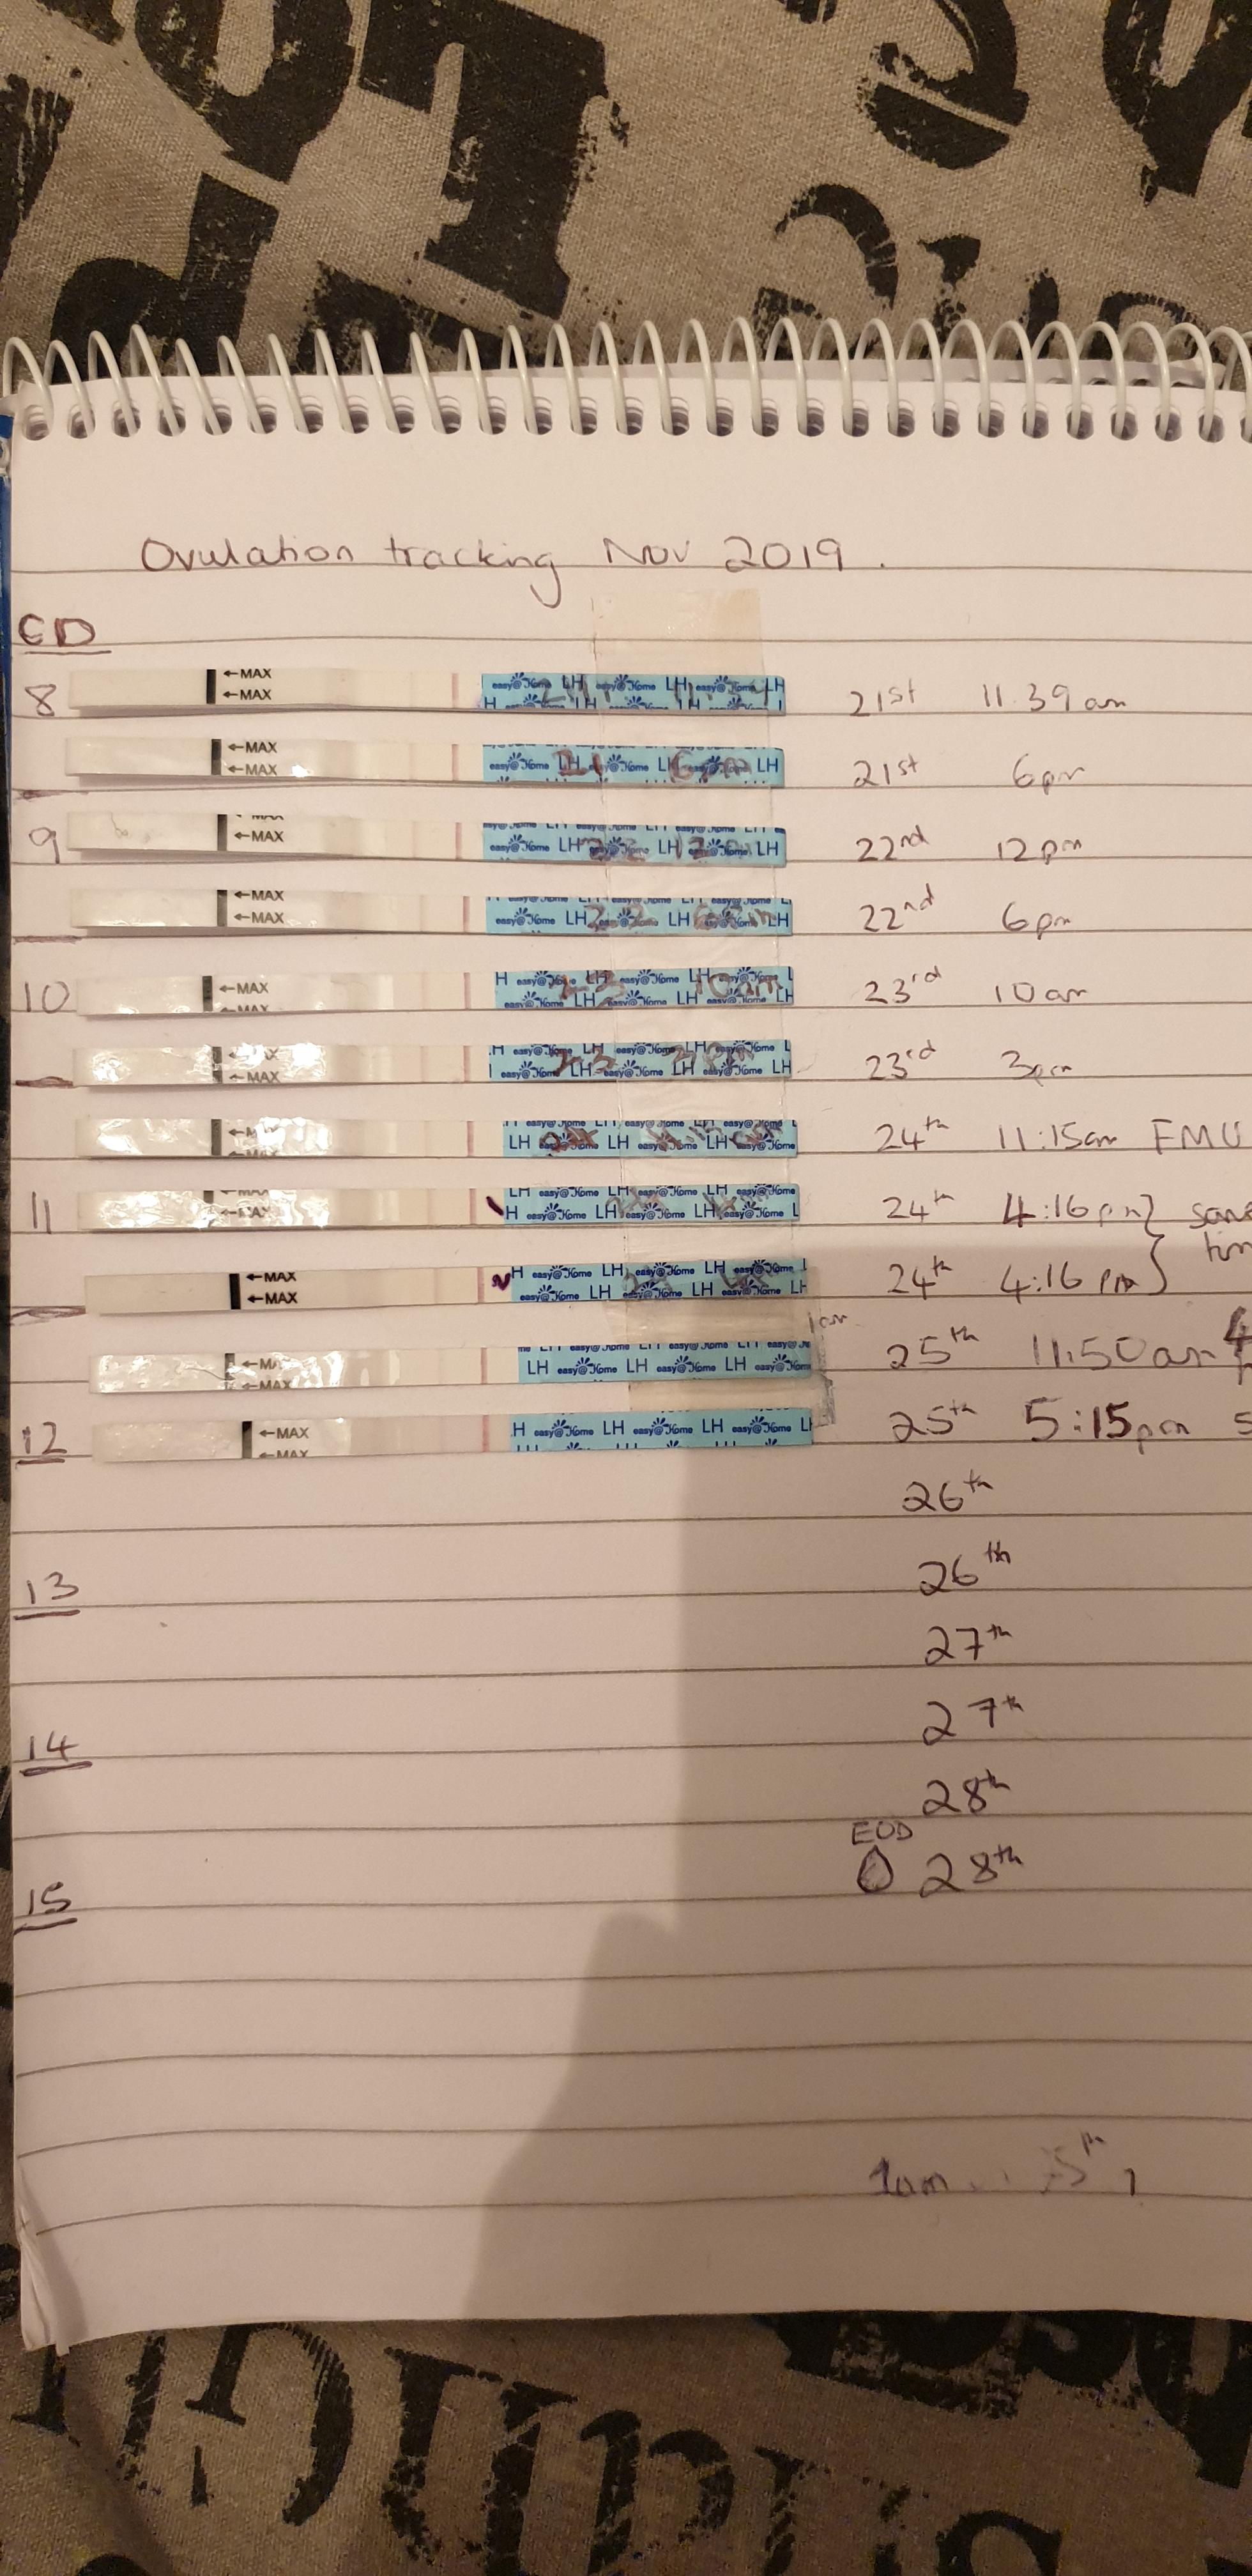 Ovulation tracking Nov 2019.
CD
8 ←MAX ←MAX easy@Home LH easy@Home LH easy@Home LH 21st 11.39am
←MAX ←MAX easy@Home LH 21 easy@Home LH 6pm easy@Home LH 21st 6pm
9 ←MAX easy@Home LH 22 easy@Home LH 12pm easy@Home LH 22nd 12pm
←MAX ←MAX easy@Home LH 22 LH easy@Home LH 22nd 6pm
10 ←MAX ←MAX H easy@Home LH easy@Home LH easy@Home 10am 23rd 10am
←MAX H easy@Home LH easy@Home LH easy@Home LH 23 3pm 23rd 3pm
LH easy@Home LH easy@Home LH easy@Home 24th 11:15am FMU
11 LH easy@Home LH easy@Home LH easy@Home 24th 4:16pm } same
←MAX ←MAX H easy@Home LH easy@Home LH easy@Home 24th 4:16pm
1am
←MAX LH easy@Home LH easy@Home LH easy@Home 25th 11:50am
12 ←MAX ←MAX H easy@Home LH easy@Home LH easy@Home 25th 5:15pm
26th
13 26th
27th
14 27th
28th
EOD
15 28th
1am